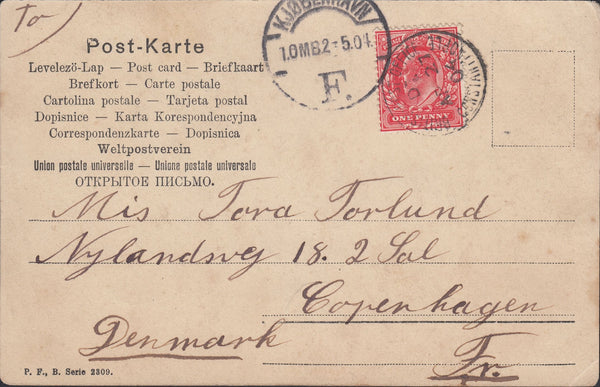 To)
KJØBENHAVN
1.OMB.2-5.04.
F.
ONE PENNY
Post-Karte
Levelezö-Lap — Post card — Briefkaart
Brefkort — Carte postale
Cartolina postale — Tarjeta postal
Dopisnice — Karta Korespondencyjna
Correspondenzkarte — Dopisnica
Weltpostverein
Union postale universelle — Unione postale universale
ОТКРЫТОЕ ПИСЬМО.
Mis Tora Torlund
Nylandsvej 18. 2 Sal
Copenhagen
Denmark Fr.
P. F., B. Serie 2309.